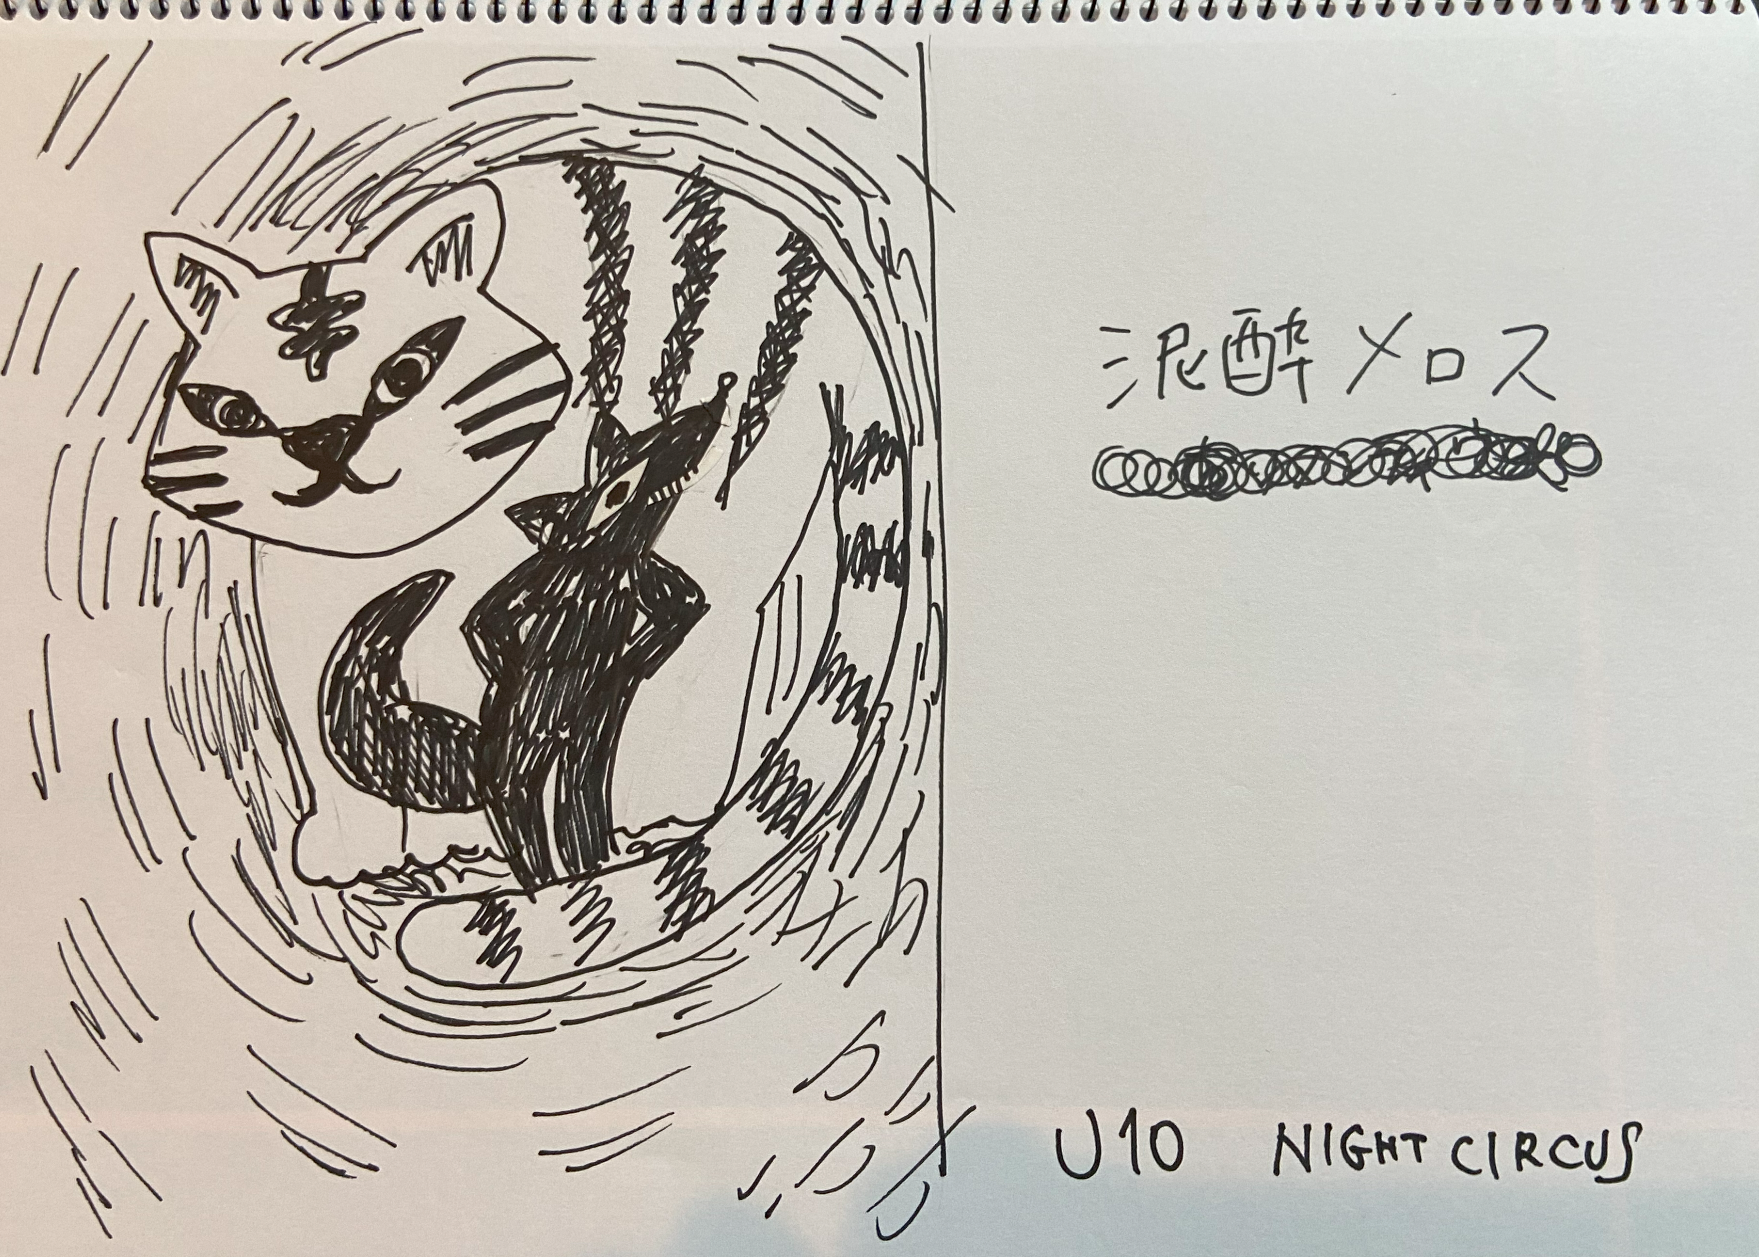 泥酔メロス
U10 NIGHT CIRCUS